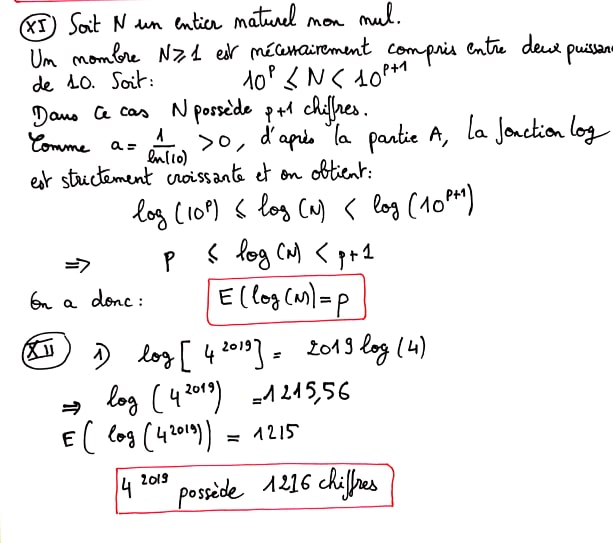 XI) Soit N un entier naturel non nul.
Un nombre N ≥ 1 est nécessairement compris entre deux puissan
de 10. Soit : 10^p ≤ N < 10^{p+1}
Dans ce cas N possède p+1 chiffres.
Comme a = 1/ln(10) > 0, d'après la partie A, la fonction log
est strictement croissante et on obtient :
log(10^p) ≤ log(N) < log(10^{p+1})
⇒ p ≤ log(N) < p+1
On a donc : E(log(N)) = p
XII) 1) log[4^{2019}] = 2019 log(4)
⇒ log(4^{2019}) = 1215,56
E(log(4^{2019})) = 1215
4^{2019} possède 1216 chiffres